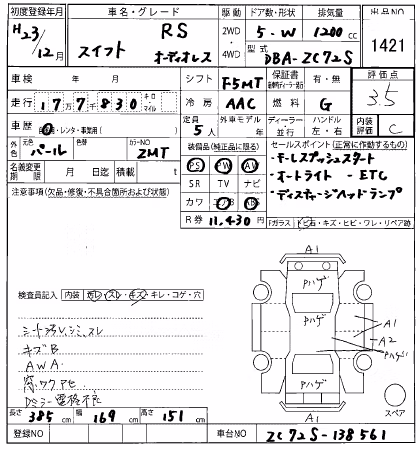 初度登録年月
H23/12月
車名・グレード
スイフト RS オーディオレス
駆動
2WD・4WD
ドア数・形状
5-W
排気量
1200cc
型式
DBA-ZC72S
出品NO
1421
車検 年 月
シフト F5MT
保証書 有・無
評価点
3.5
走行 177830 キロ・マイル
冷房 AAC
燃料 G
車歴 自・レンタ・事業用( )
定員 5人
外車モデル
ディーラー・並行
ハンドル 左・右
内装評価 C
外色 元色 パール 色替 カラーNO ZMT
装備品(純正品に限る)
PS PW AW
SR TV ナビ
カワ エアB ABS
R券 11,430円
セールスポイント(正常に作動するもの)
・キーレスプッシュスタート
・オートライト -ETC
・ディスチャージヘッドランプ
名義変更期限 月 日迄 積載 t
注意事項(欠品・修復・不具合箇所および状態)
Fガラス トビ石・キズ・ヒビ・ワレ・リペア跡
検査員記入 内装 ヨゴレ・スレ・キズ・キレ・コゲ・穴
シートヨゴレ、シミ、スレ
キズB
AWA
窓ワクアセ
Dミラー電格不良
A1
Pハゲ
Pハゲ
A1
A2
Pハゲ
Pハゲ
A1
スペア
長さ 385cm 幅 169cm 高さ 151cm
登録NO
車台NO ZC72S-138561